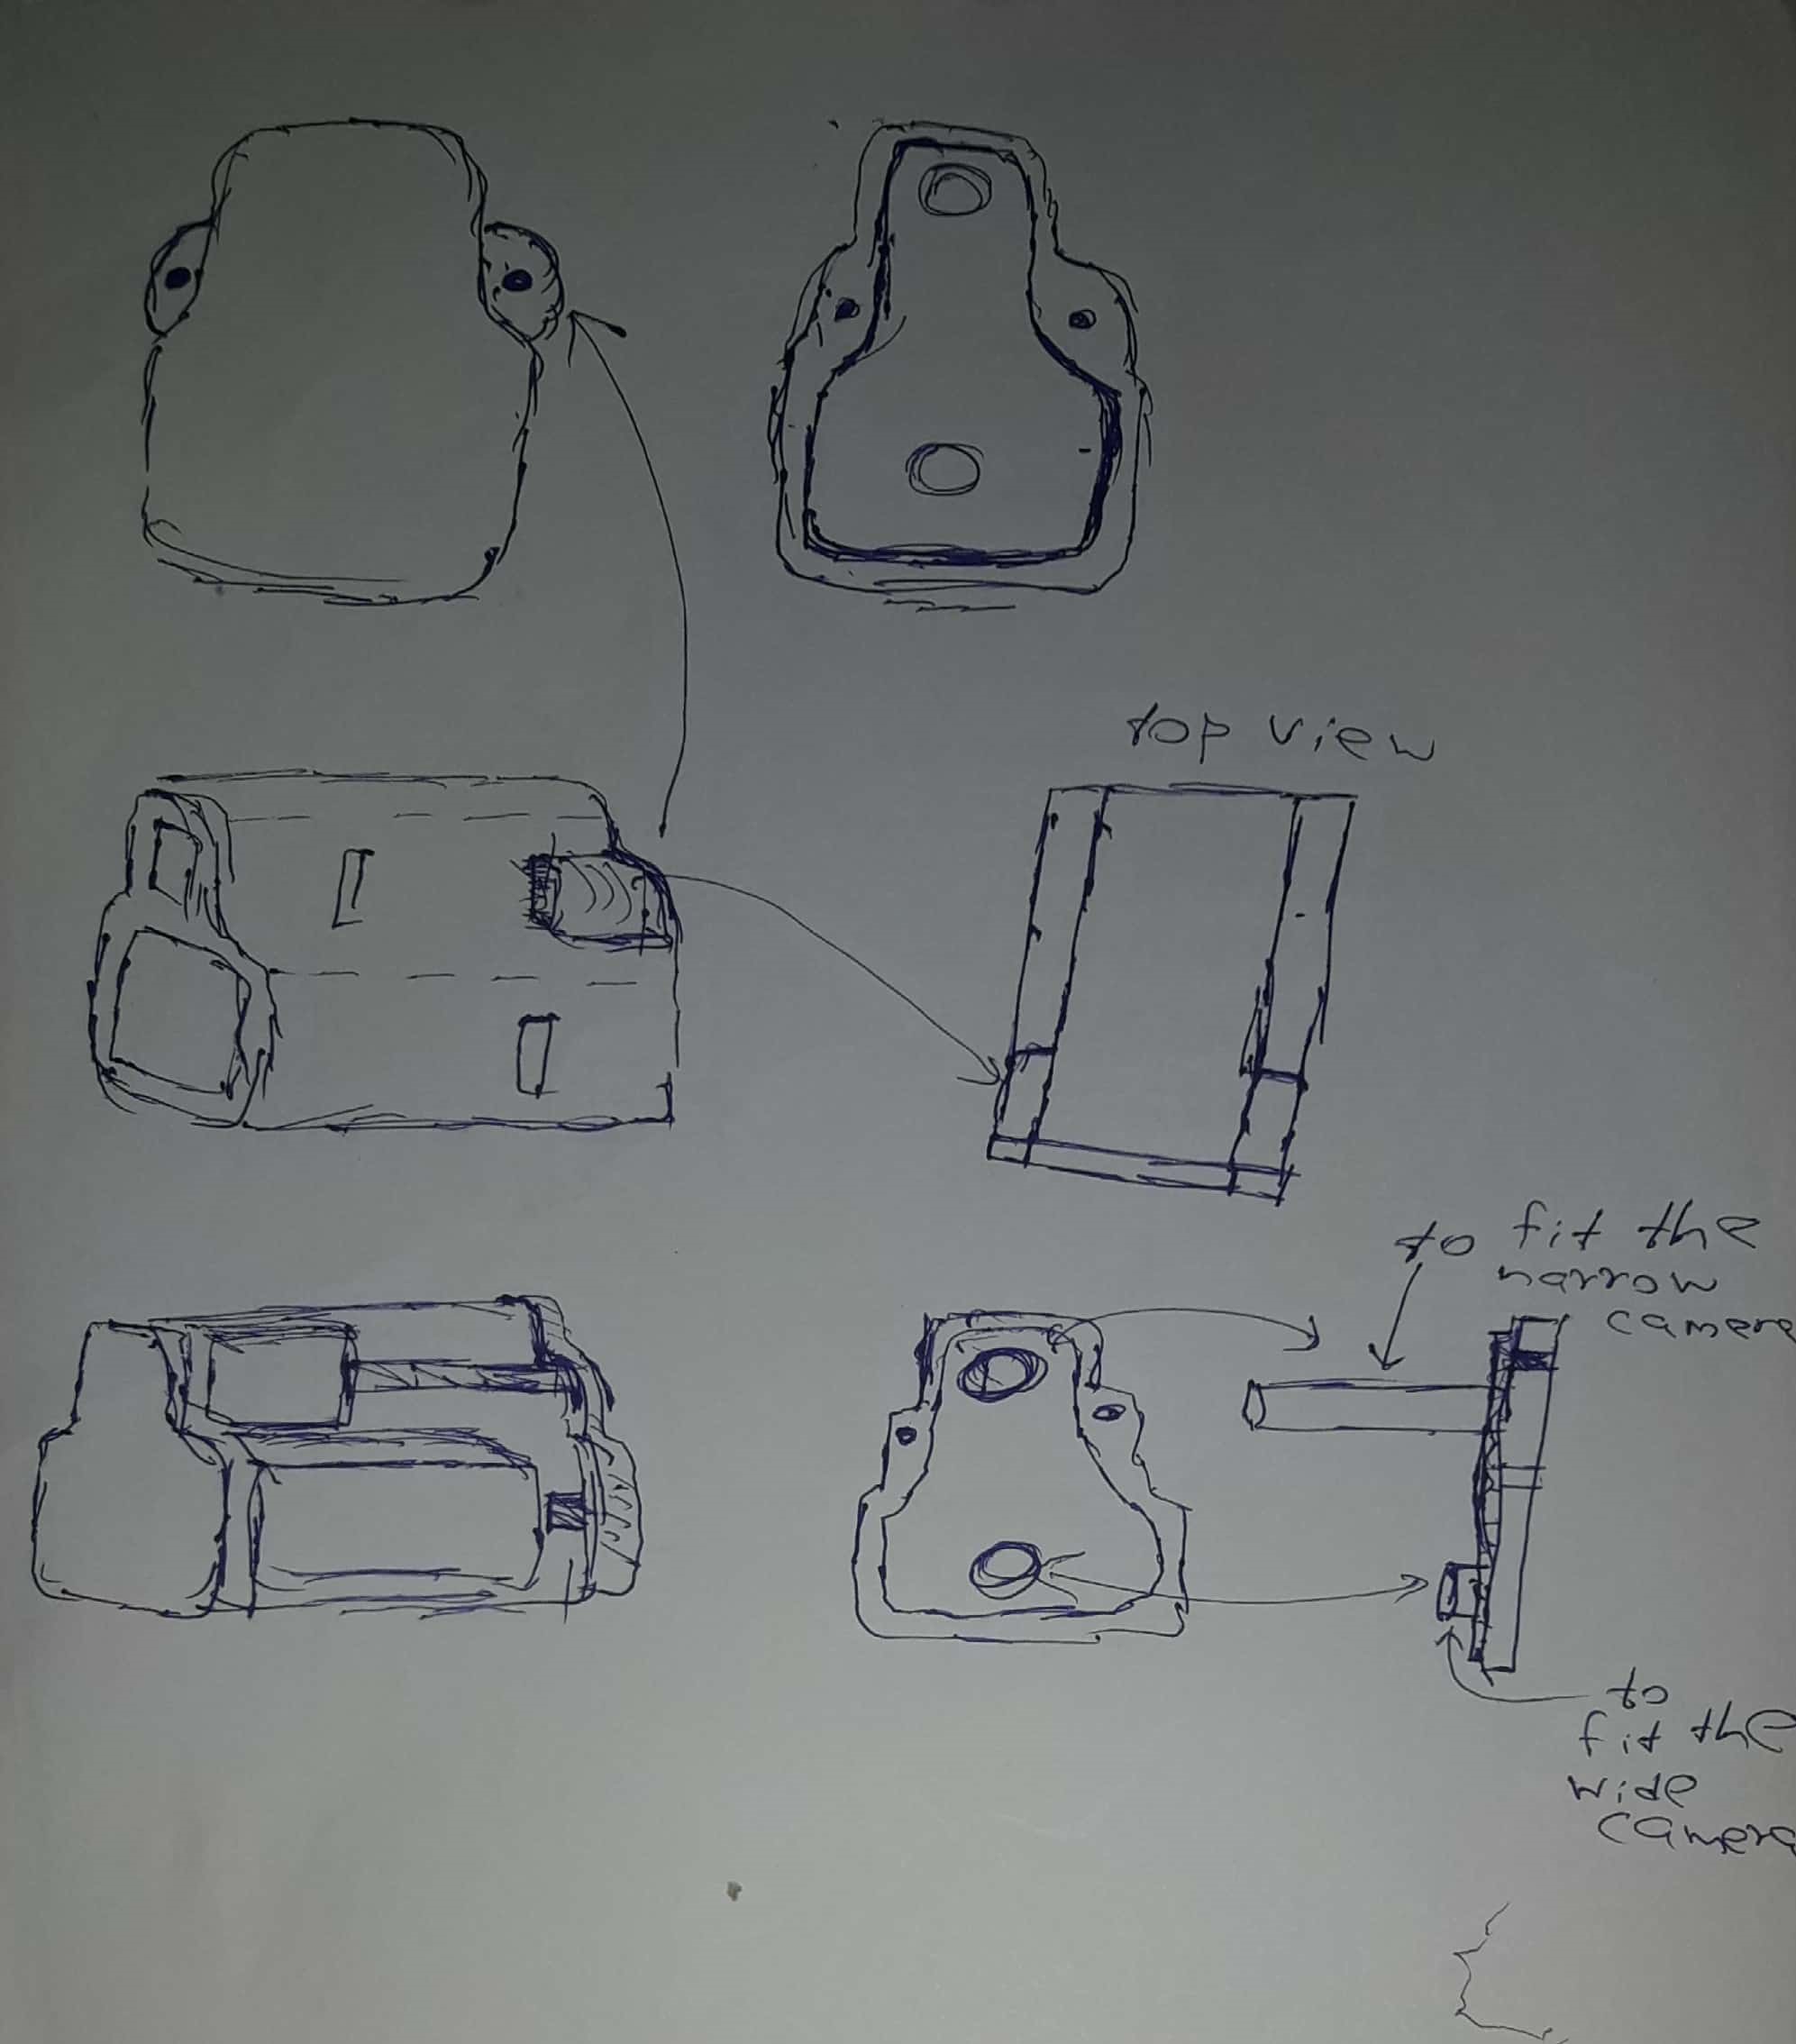 top view
to fit the
narrow
camera
to
fit the
wide
camera